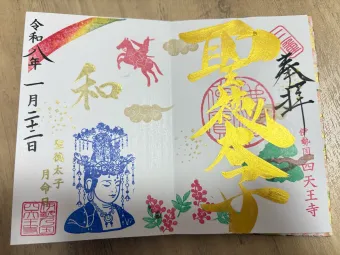 奉拝
聖徳太子
伊勢国四天王寺
和
聖徳太子
月命日
令和八年一月二十二日